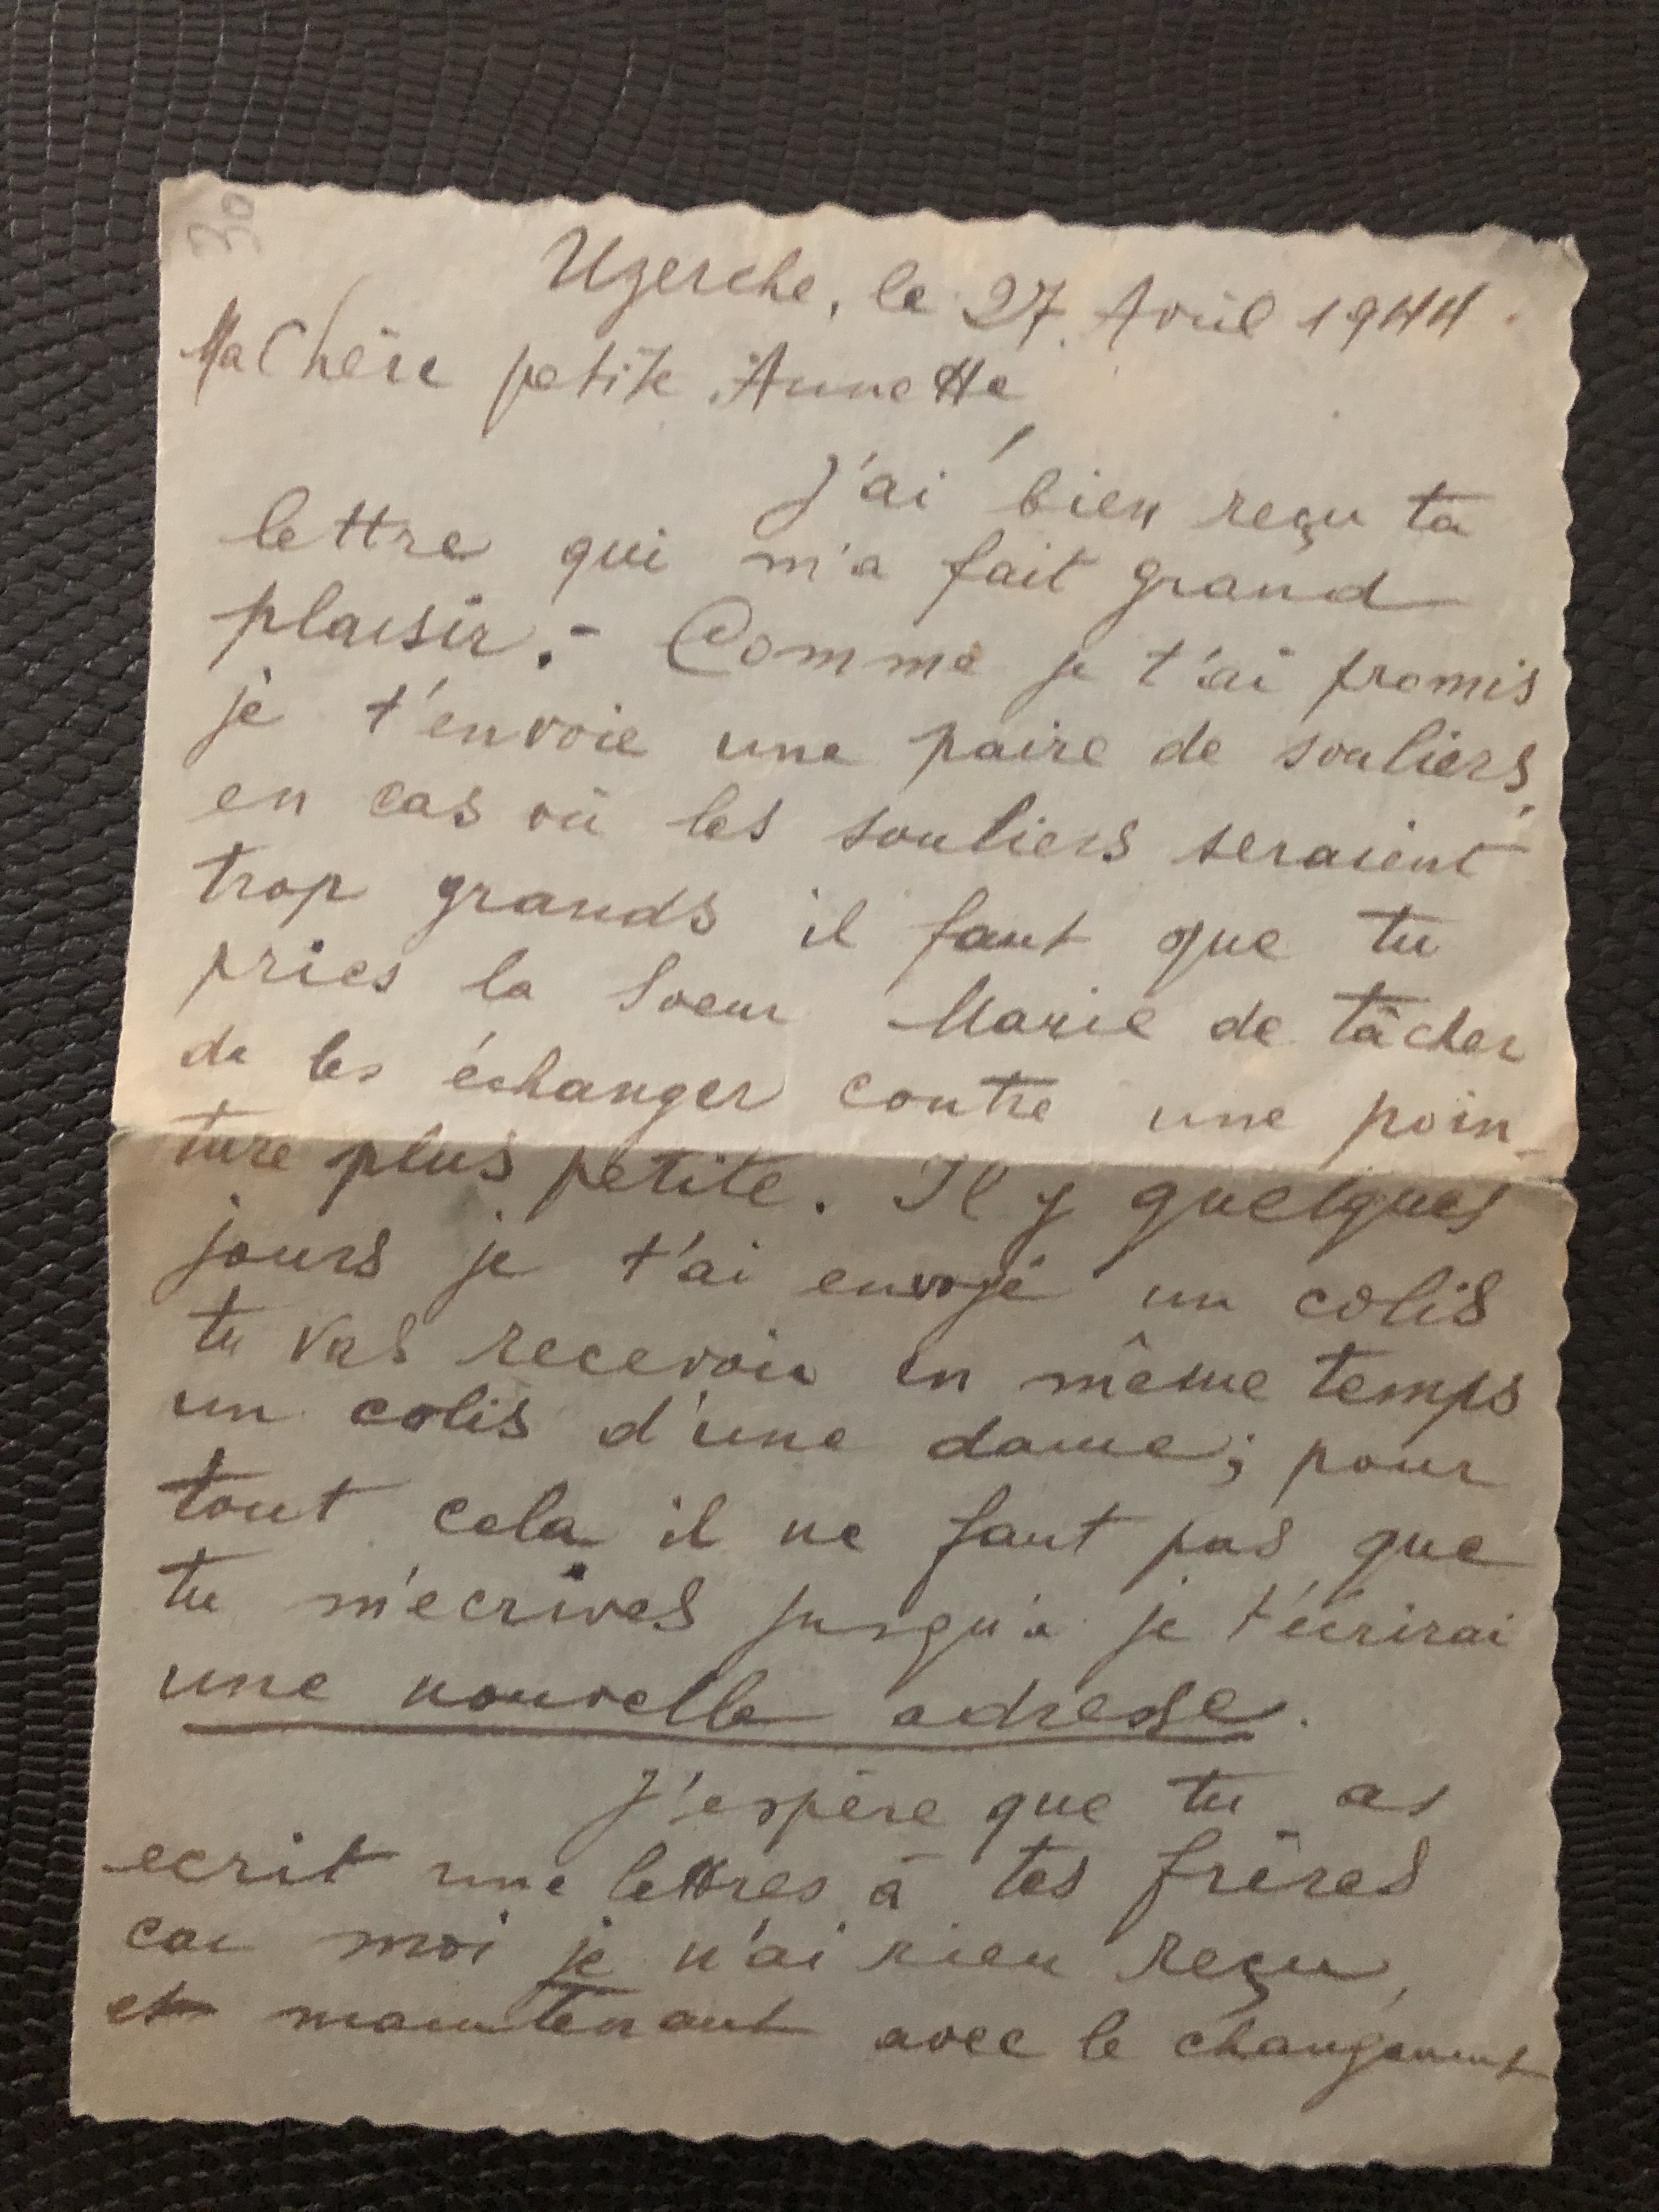 30
Uzerche, le 27 Avril 1944
Ma Chère petite Annette,
J'ai bien reçu ta
lettre qui m'a fait grand
plaisir.- Comme je t'ai promis
je t'envoie une paire de souliers,
en cas où les souliers seraient
trop grands il faut que tu
pries la Soeur Marie de tâcher
de les échanger contre une poin-
ture plus petite. Il y quelques
jours je t'ai envoyé un colis
tu vas recevoir en même temps
un colis d'une dame; pour
tout cela il ne faut pas que
tu m'ecrives jusqu'à je t'écrirai
une nouvelle adresse.
J'espère que tu as
ecrit une lettres à tes frères
car moi je n'ai rien reçu,
et maintenant avec le changement